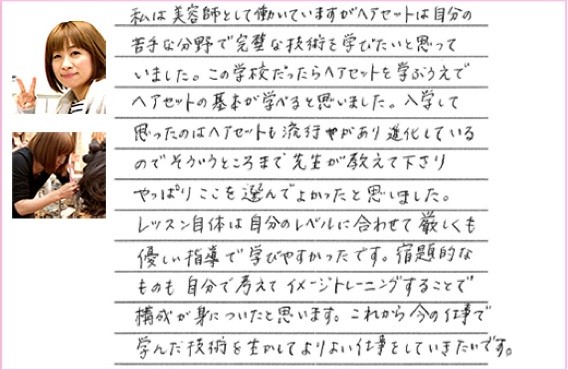 私は美容師として働いていますがヘアセットは自分の
苦手な分野で完璧な技術を学びたいと思って
いました。この学校だったらヘアセットを学ぶうえで
ヘアセットの基本が学べると思いました。入学して
思ったのはヘアセットも流行やがあり進化している
のでそういうところまで先生が教えて下さり
やっぱりここを選んでよかったと思いました。
レッスン自体は自分のレベルに合わせて厳しくも
優しい指導で学びやすかったです。宿題的な
ものも自分で考えてイメージトレーニングすることで
構成が身についたと思います。これから今の仕事で
学んだ技術を生かしてよりよい仕事をしていきたいです。